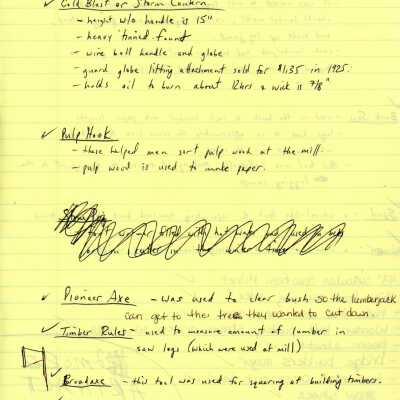 ✓ Cold Blast or Storm Lantern
- height w/o handle is 15"
- heavy tinned found
- wire ball handle and globe
- guard globe lifting attachment sold for $1.35 in 1925.
- holds oil to burn about 12hrs & wick is 7/8"
✓ Pulp Hook
- these helped men sort pulp wood at the mill.
- pulp wood is used to make paper.
✓ Pioneer Axe - was used to clear bush so the lumberjack
can get to the trees they wanted to cut down.
✓ Timber Rules - used to measure amount of lumber in
saw logs (which were used at mill)
✓ Broadaxe - this tool was used for squaring at building timbers.